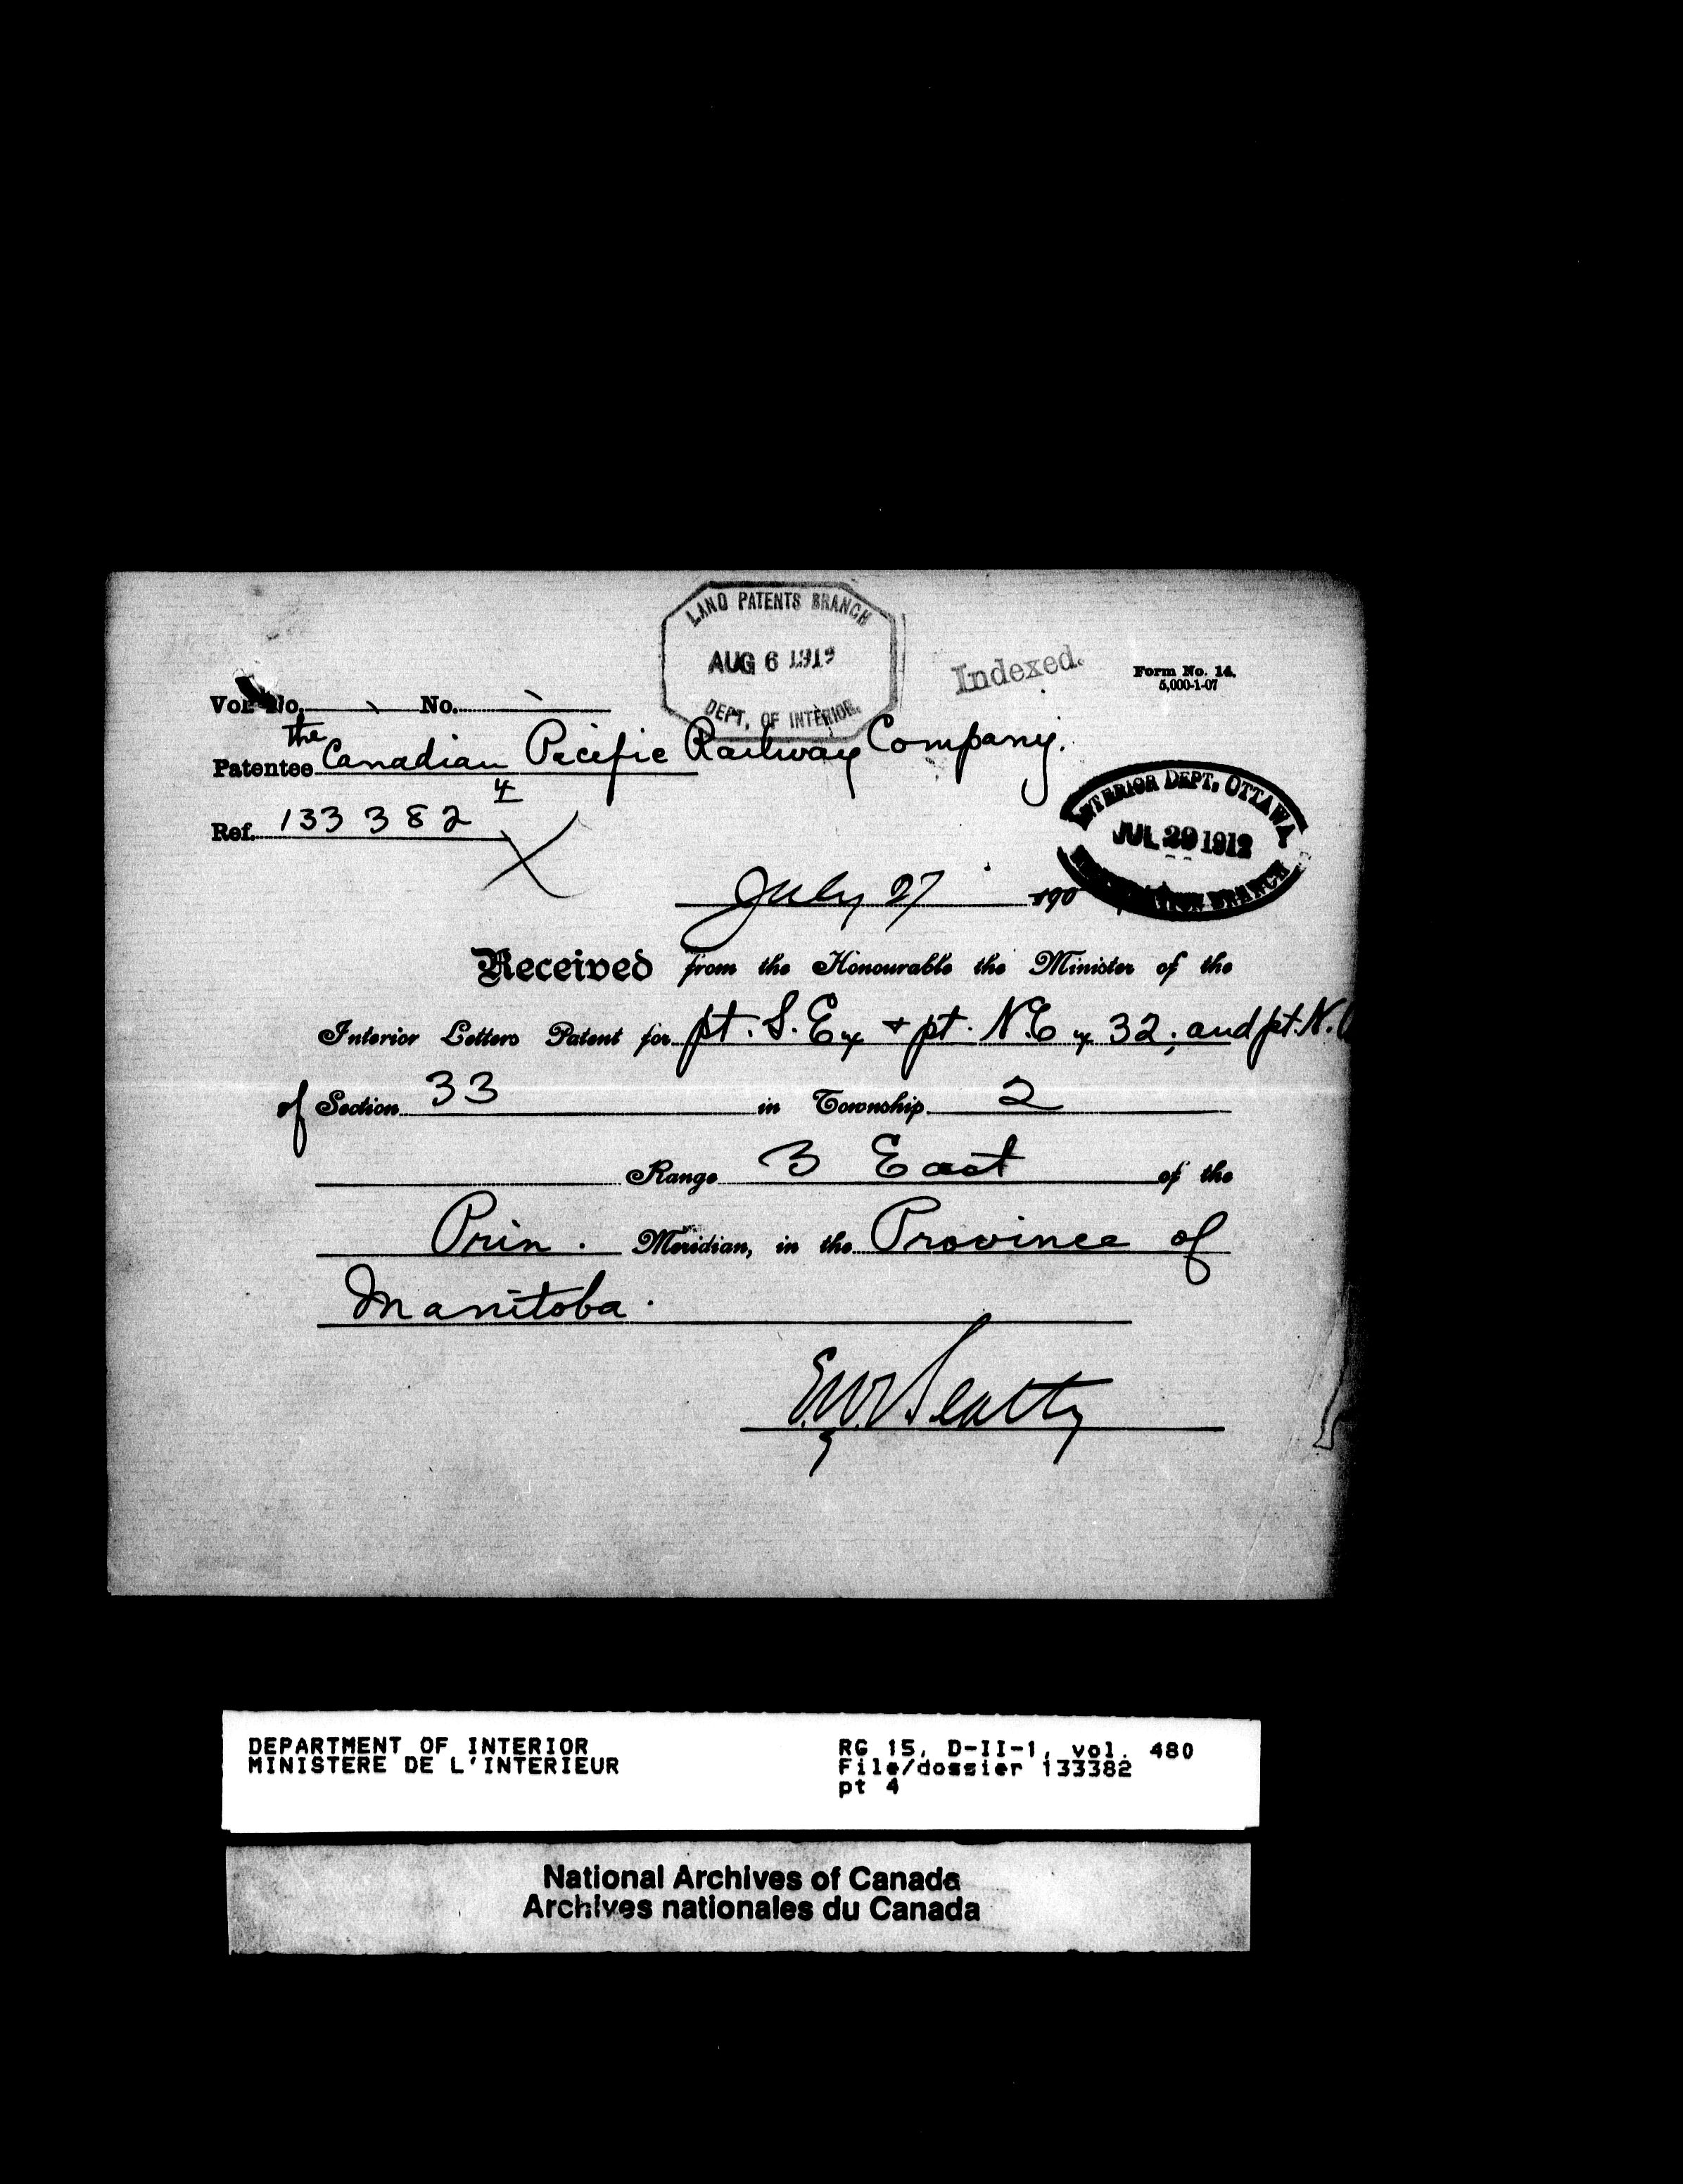 LAND PATENTS BRANCH
AUG 6 1912
DEPT. OF INTERIOR
Indexed.
Form No. 14.
5,000-1-07
Vol No. No.
the
Patentee Canadian Pacific Railway Company.
4
Ref. 133382
INTERIOR DEPT, OTTAWA
JUL 29 1912
BRANCH
July 27 190
Received from the Honourable the Minister of the
Interior Letters Patent for pt. S.E¼ + pt. N.E ¼ 32; and pt. N.
of Section 33 in Township 2
Range 3 East of the
Prin. Meridian, in the Province of
Manitoba.
E.W. Beatty
DEPARTMENT OF INTERIOR
MINISTERE DE L'INTERIEUR
RG 15, D-II-1, vol. 480
File/dossier 133382
pt 4
National Archives of Canada
Archives nationales du Canada